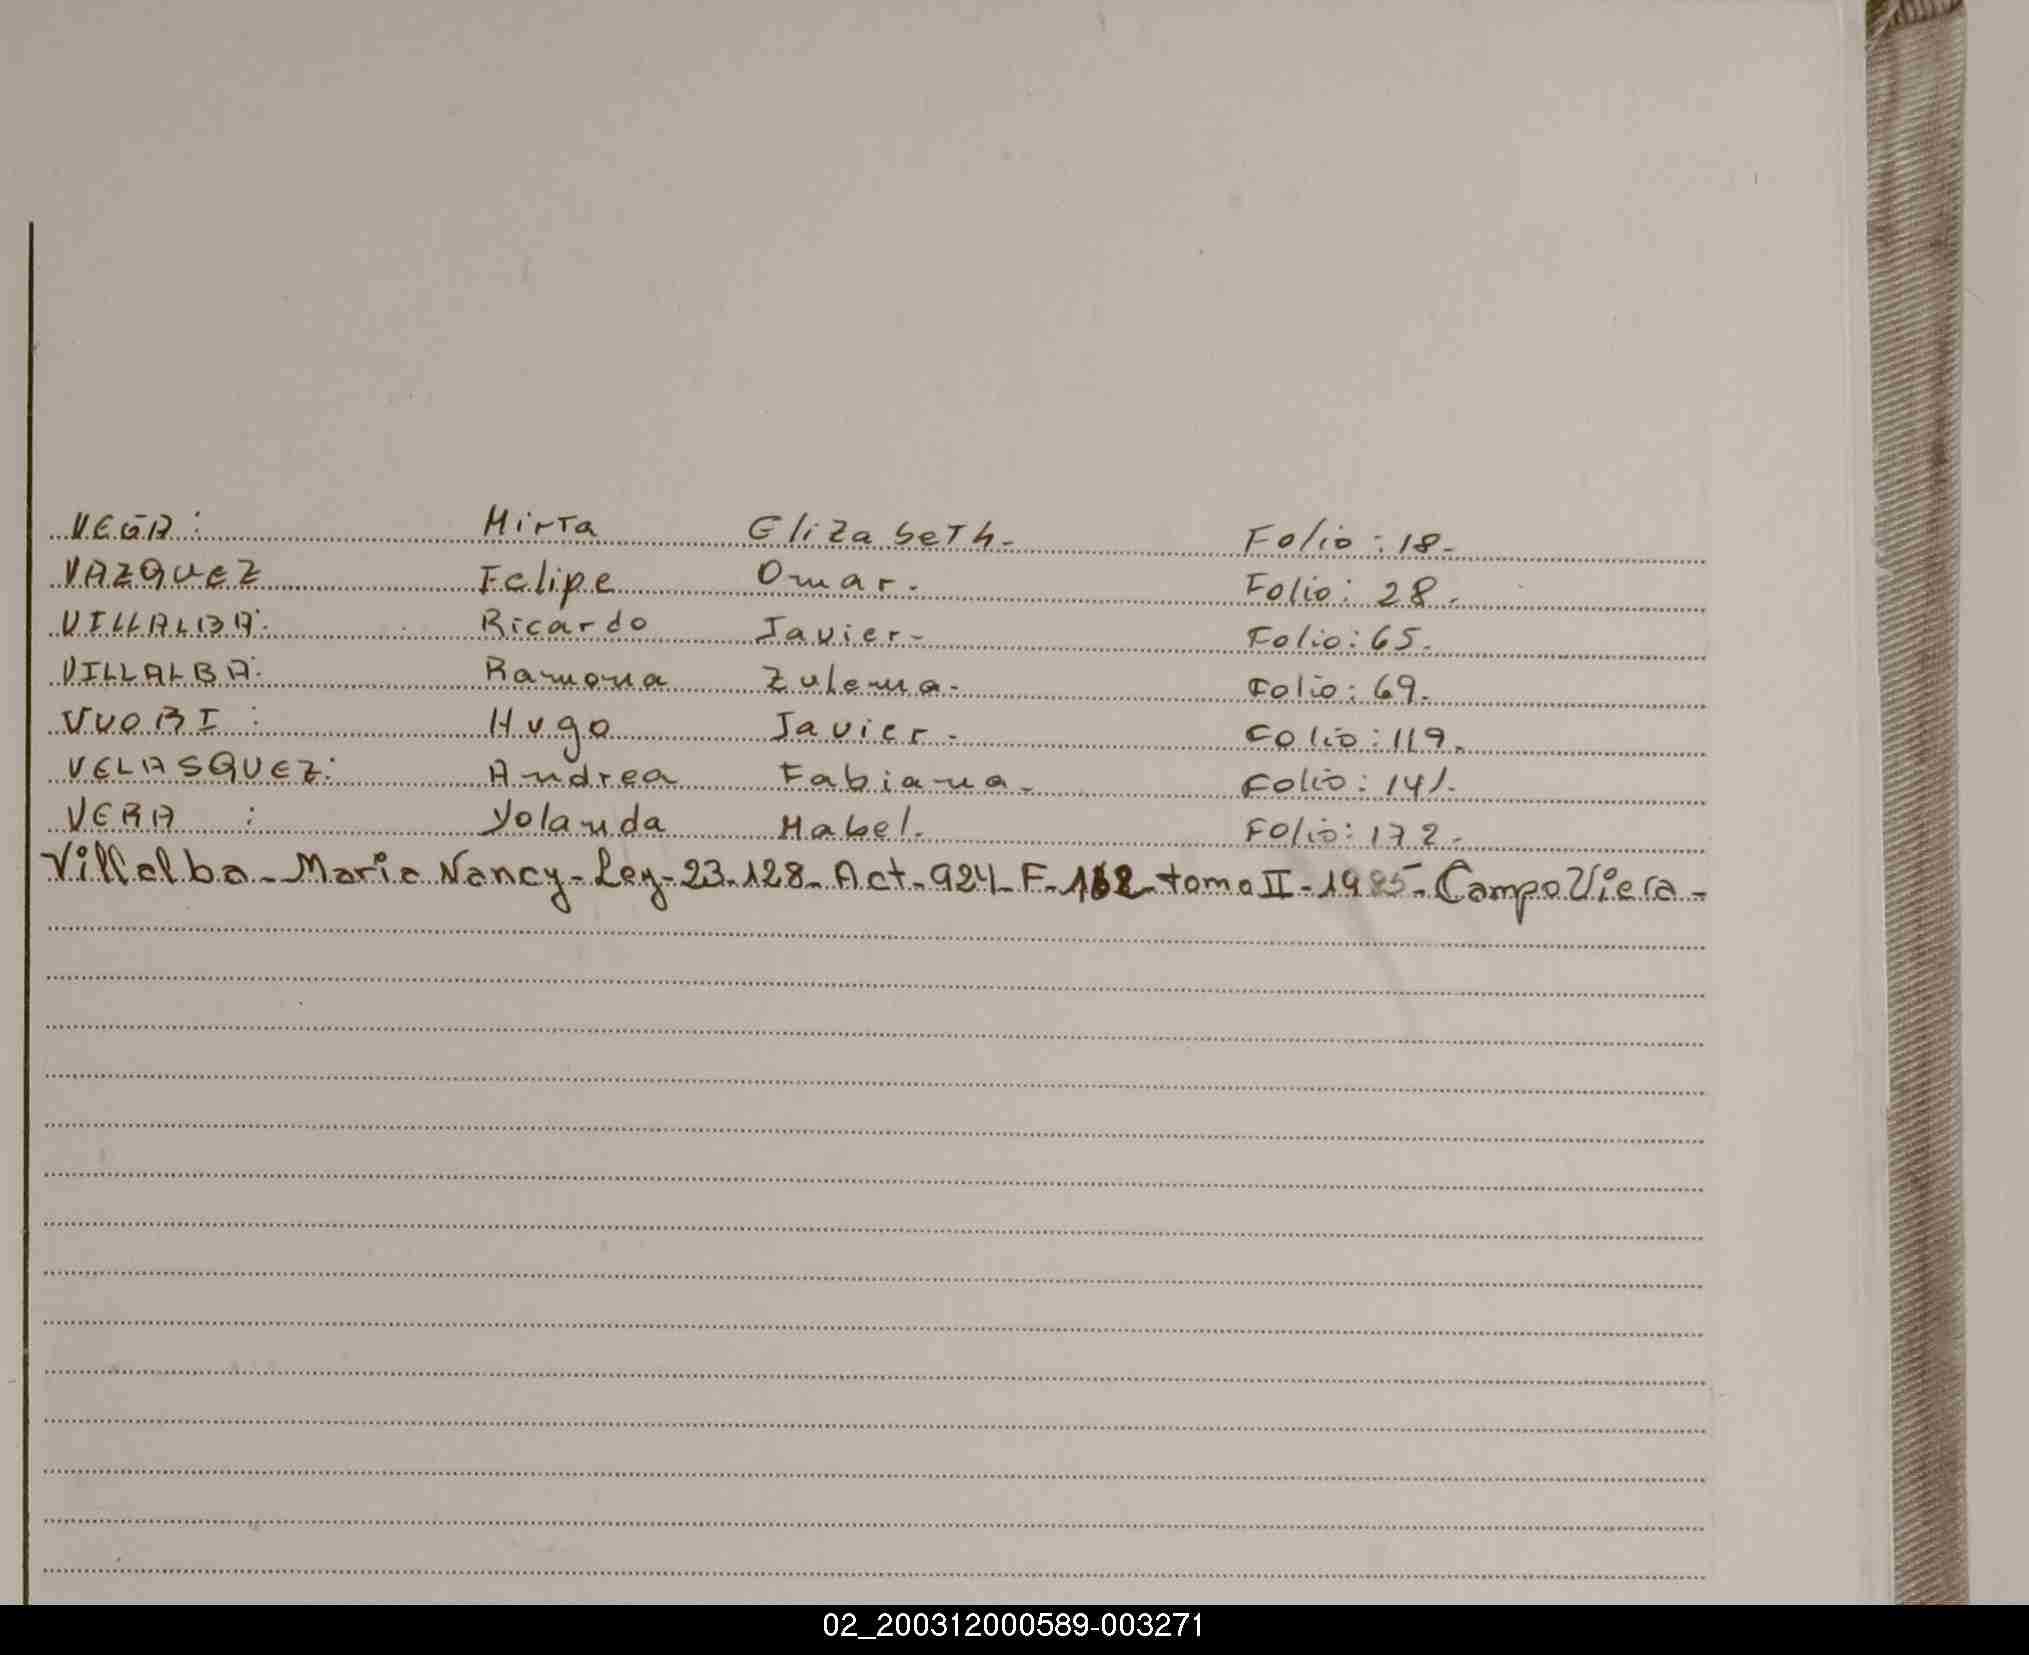 VEGA: Mirta Elizabeth. Folio: 18.
VAZQUEZ Felipe Omar. Folio: 28.
VILLALBA: Ricardo Javier. Folio: 65.
VILLALBA: Ramona Zulema. Folio: 69.
VUORI: Hugo Javier. Folio: 119.
VELASQUEZ: Andrea Fabiana. Folio: 141.
VERA : Yolanda Mabel. Folio: 172.
Villalba - Maria Nancy - Ley - 23.128 - Act - 924 - F - - tomo II - 1985 - Campo Viera -
02_200312000589-003271